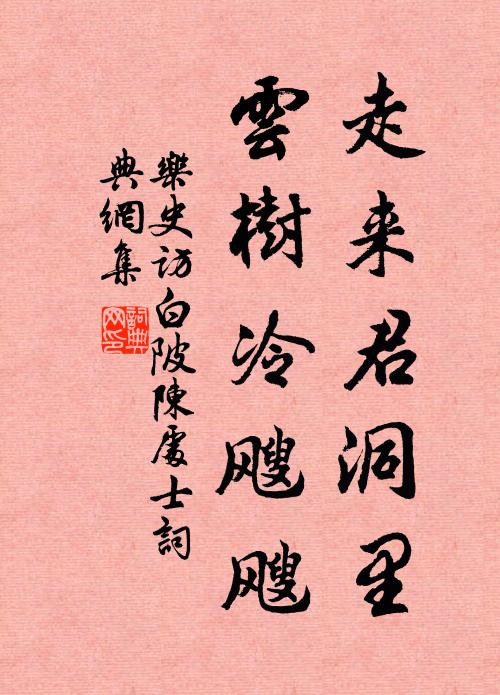 走来君洞里
雲樹冷颼颼
樂史訪白陂陳處士詞
典網集
詞典
网印